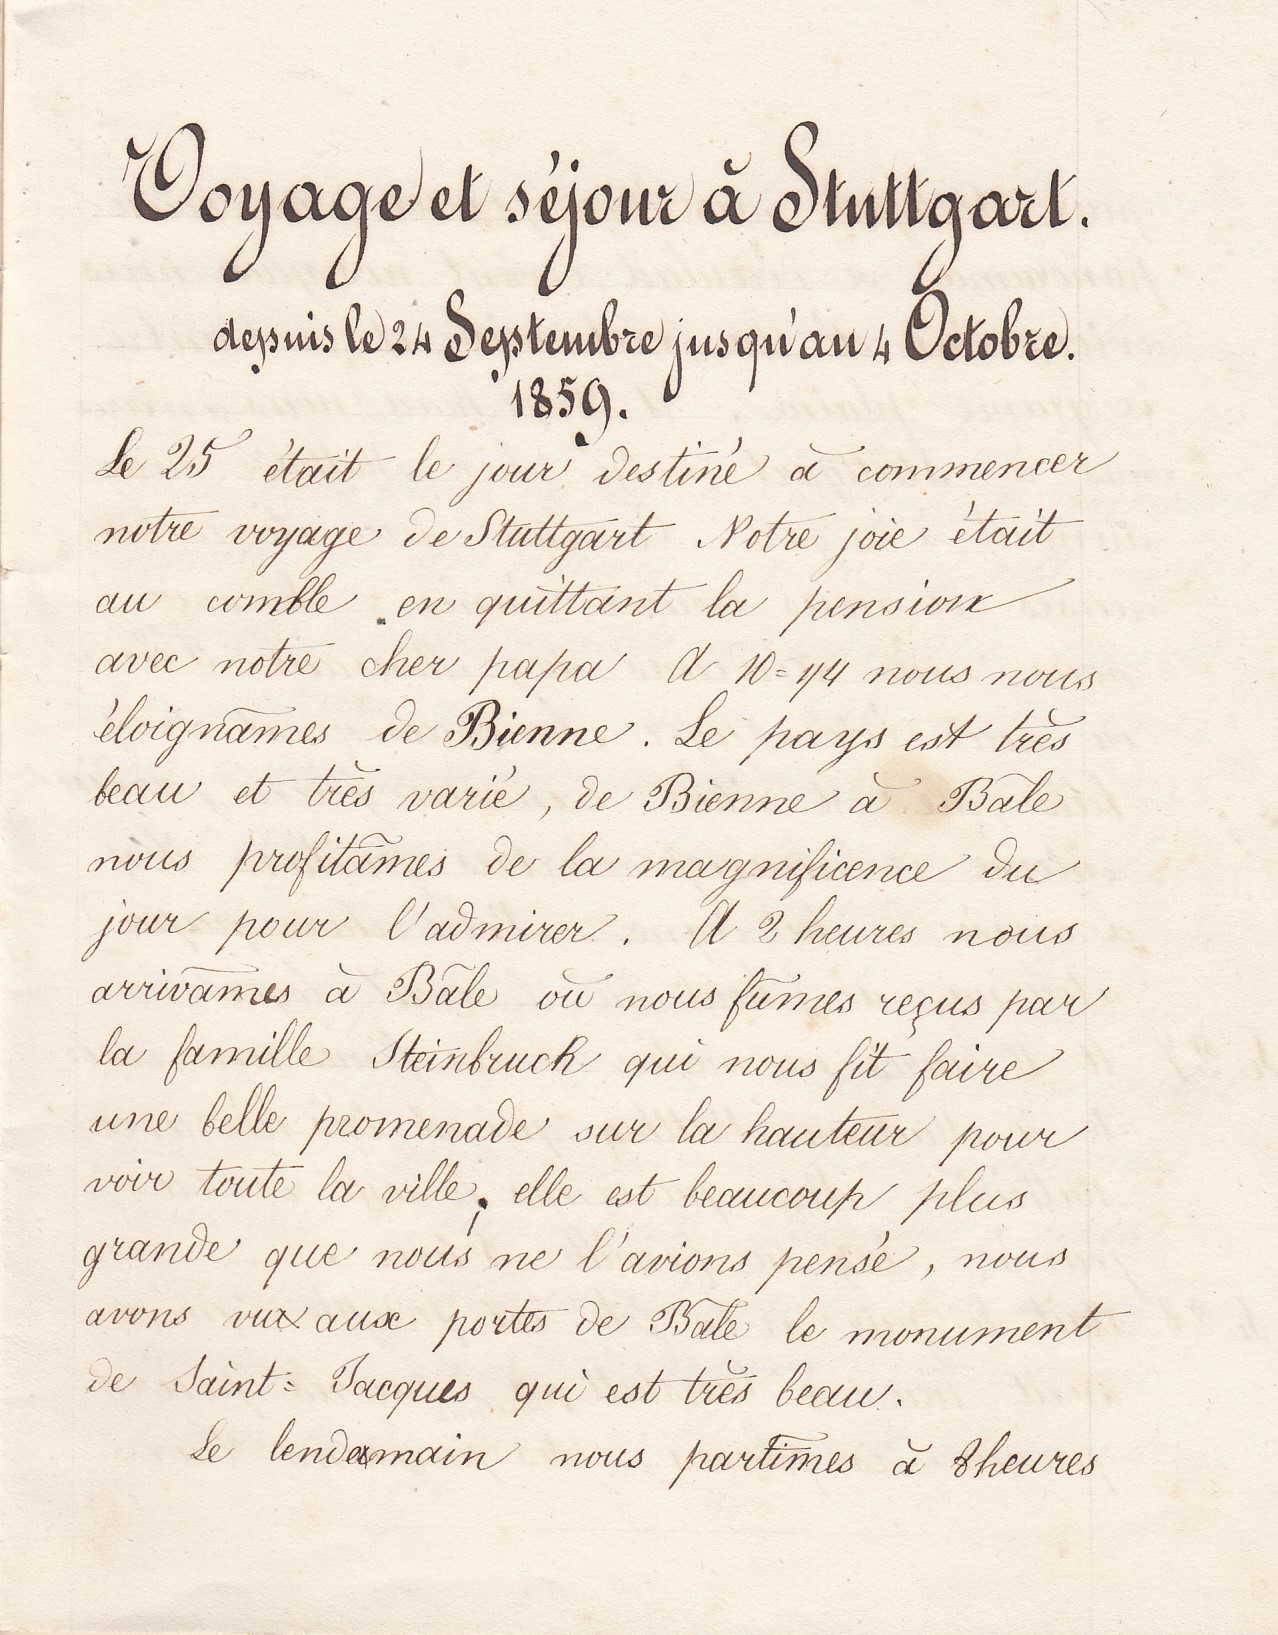 Voyage et séjour à Stuttgart.
depuis le 24 Septembre jusqu'au 4 Octobre.
1859.
Le 25 était le jour destiné à commencer
notre voyage de Stuttgart Notre joie était
au comble en quittant la pension
avec notre cher papa A 10=44 nous nous
éloignâmes de Bienne. Le pays est très
beau et très varié, de Bienne à Bâle
nous profitâmes de la magnificence du
jour pour l'admirer. A 2 heures nous
arrivâmes à Bâle où nous fûmes reçus par
la famille Steinbruck qui nous fit faire
une belle promenade sur la hauteur pour
voir toute la ville; elle est beaucoup plus
grande que nous ne l'avions pensé, nous
avons vu aux portes de Bâle le monument
de Saint=Jacques qui est très beau.
Le lendemain nous partîmes à 8 heures